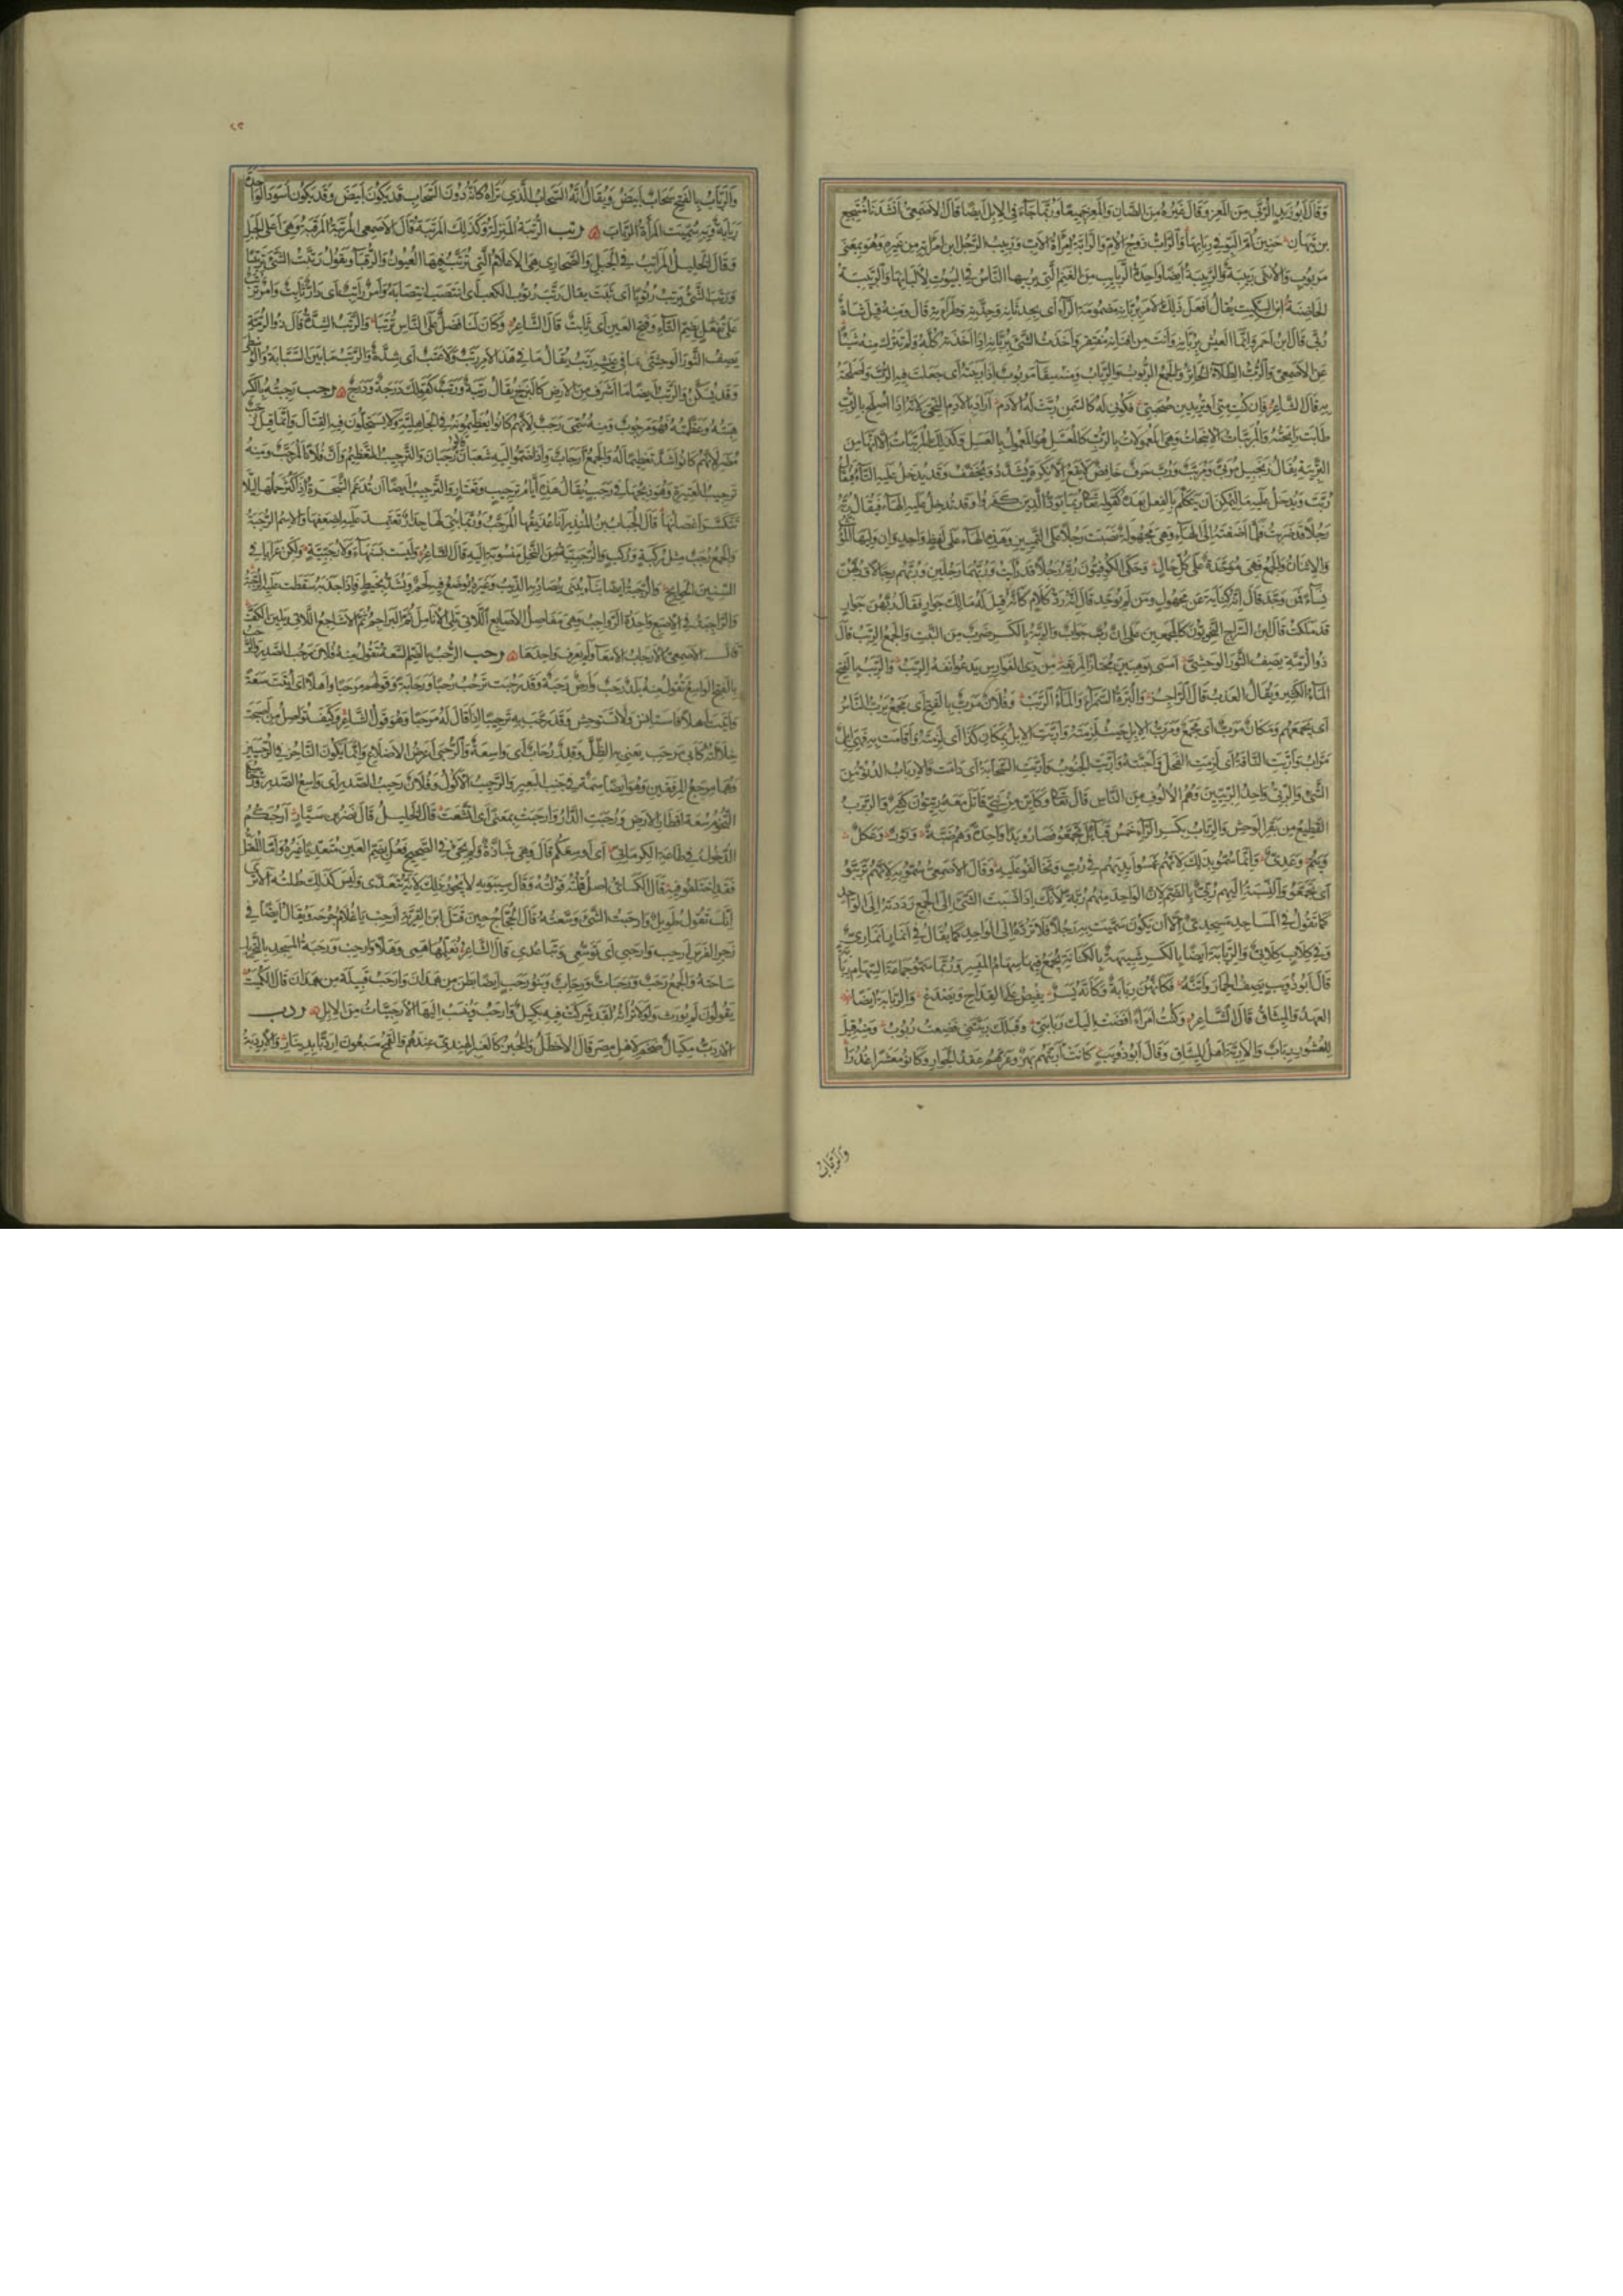 وَقَالَ أَبُو زَيْدٍ الرُّبَّى مِنَ المَعَزِ وَقَالَ غَيْرُهُ مِنَ الضَّانِ وَالمَعَزِ جَمِيعًا وَرُبَّمَا جَاءَ فِي الإِبِلِ أَيضًا قَالَ الأَصْمَعِيُّ أَنْشَدَنَا مُنْتَجِعُ
بن نَبْهَان حَنِينَ أُمِّ البَوِّ فِي رِبَابِهَا وَالرَّابُّ زَوْجُ الأُمِّ وَالرَّابَّةُ امْرَأَةُ الأَبِ وَرَبِيبُ الرَّجُلِ ابنُ امْرَأَتِهِ مِن غَيرِهِ وَهُوَ بِمَعنَى
مَربُوبٍ وَالأُنثَى رَبِيبَةٌ وَالرَّبِيبَةُ أَيضًا وَاحِدَةُ الرَّبَايِبِ مِنَ الغَنَمِ الَّتِي يُرَبِّيهَا النَّاسُ فِي البُيُوتِ لِأَلْبَانِهَا وَالرَّبِيبَةُ
الحَاضِنَةُ ابن السِكِّيت يُقَالُ افعَل ذَلِكَ الأَمرَ بِرُبَّانِهِ مَضمُومَةَ الرَّاءِ أَي بِحِدثَانِهِ وَجِدَّتِهِ وَطَرَاءَتِهِ قَالَ وَمِنهُ قِيلَ شَاةٌ
رُبَّى قَالَ ابنُ أَحمَرَ وَإِنَّمَا العَيشُ بِرُبَّانِهِ وَأَنتَ مِن أَفنَانِهِ مُفتَقِر وَأَخَذتُ الشَّيءَ بِرُبَّانِهِ إِذَا أَخَذتَهُ كُلَّهُ وَلَم تَترُك مِنهُ شَيئًا
عَنِ الأَصمَعِيِّ وَالرُّبُّ الطِّلَاءُ الخَاثِرُ وَالجَمعُ الرُّبُوبُ وَالرِّبَابُ وَمِنهُ سِقَاءٌ مَربُوبٌ إِذَا رَبَبتَهُ أَي جَعَلتَ فِيهِ الرُّبَّ وَأَصلَحتَهُ
بِهِ قَالَ الشَّاعِرُ فَإِن كُنتِ مِنِّي أَو تُرِيدِينَ صُحبَتِي فَكُونِي لَهُ كَالسَّمنِ رُبَّت لَهُ الأَدَم أَرَادَ بِالأَدَمِ النِّحيَ لِأَنَّهُ إِذَا أُصلِحَ بِالرُّبِّ
طَابَت رَائِحَتُهُ وَالمُرَبَّبَاتُ الأَنبِجَاتُ وَهِيَ المَعمُولَاتُ بِالرُّبِّ كَالمُعَسَّلِ هُوَ المَعمُولُ بِالعَسَلِ وَكَذَلِكَ المُرَبَّيَاتُ إِلَّا أَنَّهَا مِن
التَّربِيَةِ يُقَالُ زَنجَبِيلٌ مُرَبًّى وَمُرَبَّبٌ وَرُبَّ حَرفٌ خَافِضٌ لَا يَقَعُ إِلَّا عَلَى نَكِرَةٍ يُشَدَّدُ وَيُخَفَّفُ وَقَد يَدخُلُ عَلَيهِ التَّاءُ فَيُقَالُ
رُبَّتَ وَيَدخُلُ عَلَيهِ مَا لِيُمكِنَ أَن يَتَكَلَّمَ بِالفِعلِ بَعدَهُ كَقَولِهِ تَعَالَى رُبَمَا يَوَدُّ الَّذِينَ كَفَرُوا وَقَد تَدخُلُ عَلَيهِ الهَاءُ فَيُقَالُ رُبَّهُ
رَجُلًا قَد ضَرَبتُ فَلَمَّا أَضَفتَهُ إِلَى الهَاءِ وَهِيَ مَجهُولَةٌ نَصَبتَ رَجُلًا عَلَى التَّميِيزِ وَهَذِهِ الهَاءُ عَلَى لَفظٍ وَاحِدٍ وَإِن وَلِيَهَا المُؤَنَّثُ
وَالاثنَانُ وَالجَمعُ فَهِيَ مُوَحَّدَةٌ عَلَى كُلِّ حَالٍ وَحَكَى الكُوفِيُّونَ رُبَّهُ رَجُلًا قَد رَأَيتُ وَرُبَّهُمَا رَجُلَينِ وَرُبَّهُم رِجَالًا وَرُبَّهُنَّ
نِسَاءً فَمَن وَحَّدَ قَالَ إِنَّهُ كِنَايَةٌ عَن مَجهُولٍ وَمَن لَم يُوَحِّد قَالَ إِنَّهُ رَدُّ كَلَامٍ كَأَنَّهُ قِيلَ لَهُ مَا لَكَ جَوَارٍ فَقَالَ رُبَّهُنَّ جَوَارٍ
قَد مَلَكتُ قَالَ ابنُ السَّرَّاجِ النَّحوِيُّونَ كَالمُجمِعِينَ عَلَى أَنَّ رُبَّ جَوَابٌ وَالرِّبَّةُ بِالكَسرِ ضَربٌ مِنَ النَّبتِ وَالجَمعُ الرِّبَبُ قَالَ
ذُو الرُّمَّةِ يَصِفُ الثَّورَ الوَحشِيَّ أَمسَى بِوَهبِينَ مُختَارًا لِمَرتَعِهِ مِن ذِي الفَوَارِسِ يَدعُو أَنفَهُ الرِّبَبُ وَالرَّبَبُ بِالفَتحِ
المَاءُ الكَثِيرُ وَيُقَالُ العَذبُ قَالَ الرَّاجِزُ وَالبُرَّةَ السَّمرَاءَ وَالمَاءَ الرَّبَبْ وَفُلَانٌ مَرَبٌّ بِالفَتحِ أَي مَجمَعٌ يَرُبُّ النَّاسَ
أَي يَجمَعُهُم وَمَكَانٌ مَرَبٌّ أَي مَجمَعٌ وَمَرَبُّ الإِبِلِ حَيثُ لَزِمَتهُ وَأَرَبَّتِ الإِبِلُ بِمَكَانِ كَذَا أَي لَزِمَتهُ وَأَقَامَت بِهِ فَهِيَ إِبِلٌ
مَرَابُّ وَأَرَبَّتِ النَّاقَةُ أَي لَزِمَتِ الفَحلَ وَأَحَبَّتهُ وَأَرَبَّتِ الجَنُوبُ وَأَرَبَّتِ السَّحَابَةُ أَي دَامَت وَالإِربَابُ الدُّنُوُّ مِنَ
الشَّيءِ وَالرِّبِّيُّ وَاحِدُ الرِّبِّيِّينَ وَهُمُ الأُلُوفُ مِنَ النَّاسِ قَالَ تَعَالَى وَكَأَيِّن مِن نَبِيٍّ قَاتَلَ مَعَهُ رِبِّيُّونَ كَثِيرٌ وَالرَّبرَبُ
القَطِيعُ مِن بَقَرِ الوَحشِ وَالرِّبَابُ بِكَسرِ الرَّاءِ خَمسُ قَبَائِلَ تَجَمَّعُوا فَصَارُوا يَدًا وَاحِدَةً وَهُم ضَبَّةُ وَثَورٌ وَعُكلٌ
وَتَيمٌ وَعَدِيٌّ وَإِنَّمَا سُمُّوا بِذَلِكَ لِأَنَّهُم غَمَسُوا أَيدِيَهُم فِي رُبٍّ وَتَحَالَفُوا عَلَيهِ وَقَالَ الأَصمَعِيُّ سُمُّوا بِهِ لِأَنَّهُم تَرَبَّبُوا
أَي تَجَمَّعُوا وَالنِّسبَةُ إِلَيهِم رُبِّيٌّ بِالضَّمِّ لِأَنَّ الوَاحِدَ مِنهُم رُبَّةٌ لِأَنَّكَ إِذَا نَسَبتَ الشَّيءَ إِلَى الجَمعِ رَدَدتَهُ إِلَى الوَاحِدِ
كَمَا تَقُولُ فِي المَسَاجِدِ مَسجِدِيٌّ إِلَّا أَن يَكُونَ سَمَّيتَ بِهِ رَجُلًا فَلَا تَرُدُّهُ إِلَى الوَاحِدِ كَمَا يُقَالُ فِي أَنمَارٍ أَنمَارِيٌّ
وَفِي كِلَابٍ كِلَابِيٌّ وَالرِّبَابَةُ أَيضًا بِالكَسرِ شَبِيهَةٌ بِالكِنَانَةِ يُجمَعُ فِيهَا سِهَامُ المَيسِرِ وَرُبَّمَا سَمَّوا جَمَاعَةَ السِّهَامِ رِبَابَةً
قَالَ أَبُو ذُؤَيبٍ يَصِفُ الحِمَارَ وَأُتُنَهُ فَكَأَنَّهُنَّ رِبَابَةٌ وَكَأَنَّهُ يَسَرٌ يَفِيضُ عَلَى القِدَاحِ وَيَصدَعُ وَالرِّبَابَةُ أَيضًا
العَهدُ وَالمِيثَاقُ قَالَ الشَّاعِرُ وَكُنتُ امرَأً أَفضَت إِلَيكَ رِبَابَتِي وَقَبلَكَ رَبَّتنِي فَضِعتُ رُبُوبُ وَمِنهُ قِيلَ
لِلعُشُورِ رِبَابٌ وَالأَرِبَّةُ أَهلُ المِيثَاقِ وَقَالَ أَبُو ذُؤَيبٍ كَانَت أَرِبَّتَهُم بَهزٌ وَغَرَّهُمُ عَقدُ الجِوَارِ وَكَانُوا مَعشَرًا غُدُرَا
وَالرَّبَابُ
٢٣
وَالرَّبَابُ بِالفَتحِ سَحَابٌ أَبيَضُ وَيُقَالُ إِنَّهُ السَّحَابُ الَّذِي تَرَاهُ كَأَنَّهُ دُونَ السَّحَابِ قَد يَكُونُ أَبيَضَ وَقَد يَكُونُ أَسوَدَ الوَاحِدَةُ
رَبَابَةٌ وَبِهِ سُمِّيَتِ المَرأَةُ الرَّبَابَ رتب الرُّتبَةُ المَنزِلَةُ وَكَذَلِكَ المَرتَبَةُ قَالَ الأَصمَعِي المَرتَبَةُ المَرقَبَةُ وَهِيَ أَعلَى الجَبَلِ
وَقَالَ الخَلِيلُ المَرَاتِبُ فِي الجَبَلِ وَالصَّحَارِي هِيَ الأَعلَامُ الَّتِي تُرَتَّبُ فِيهَا العُيُونُ وَالرُّقَبَاءُ وَيَقُولُ رَتَّبتُ الشَّيءَ تَرتِيبًا
وَرَتَبَ الشَّيءُ يَرتُبُ رُتُوبًا أَي ثَبَتَ يقال رَتَبَ رُتُوبَ الكَعبِ أَي انتَصَبَ انتِصَابَهُ وَأَمرٌ رَاتِبٌ أَي دَارٌّ ثَابِتٌ وَأَمرٌ تُرتَبٌ
عَلَى تُفعَلٍ بِضَمِّ التَّاءِ وَفَتحِ العَينِ أَي ثَابِتٌ قَالَ الشَّاعِرُ وَكَانَ لَنَا فَضلٌ عَلَى النَّاسِ تُرتَبَا وَالرَّتَبُ الشِّدَّةُ قَالَ ذُو الرُّمَّةِ
يَصِفُ الثَّورَ الوَحشِيَّ مَا فِي عَيشِهِ رَتَبٌ يُقَالُ مَا فِي هَذَا الأَمرِ رَتَبٌ وَلَا عَتَبٌ أَي شِدَّةٌ وَالرَّتَبُ مَا بَينَ السَّبَّابَةِ وَالوُسطَى
وَقَد يُسَكَّنُ وَالرَّتَبُ أَيضًا مَا أَشرَفَ مِنَ الأَرضِ كَالبَرزَخِ يُقَالُ رَتَبَةٌ وَرَتَبٌ كَقَولِكَ دَرَجَةٌ وَدَرَجٌ رجب رَجِبتُهُ بِالكَسرِ
هِبتُهُ وَعَظَّمتُهُ فَهُوَ مَرجُوبٌ وَمِنهُ سُمِّيَ رَجَبٌ لِأَنَّهُم كَانُوا يُعَظِّمُونَهُ فِي الجَاهِلِيَّةِ وَلَا يَستَحِلُّونَ فِيهِ القِتَالَ وَإِنَّمَا قِيلَ رَجَبُ
مُضَرَ لِأَنَّهُم كَانُوا أَشَدَّ تَعظِيمًا لَهُ وَالجَمعُ أَرجَابٌ وَإِذَا ضَمُّوا إِلَيهِ شَعبَانَ قَالُوا رَجَبَانِ وَالتَّرجِيبُ التَّعظِيمُ وَإِنَّ فُلَانًا لَمُرَجَّبٌ وَمِنهُ
تَرجِيبُ العَتِيرَةِ وَهُوَ ذَبحُهَا فِي رَجَبٍ يُقَالُ هَذِهِ أَيَّامُ تَرجِيبٍ وَتَعتَارٍ وَالتَّرجِيبُ أَيضًا أَن تُدعَمَ الشَّجَرَةُ إِذَا كَثُرَ حَملُهَا لِئَلَّا
تَنكَسِرَ أَغصَانُهَا قَالَ الحُبَابُ بنُ المُنذِرِ أَنَا عُذَيقُهَا المُرَجَّبُ وَرُبَّمَا بُنِيَ لَهَا جِدَارٌ تَعتَمِدُ عَلَيهِ لِضَعفِهَا وَالاسمُ الرُّجبَةُ
وَالجَمعُ رُجَبٌ مِثلُ رُكبَةٍ وَرُكَبٍ وَالرُّجَبِيَّةُ مِنَ النَّخلِ مَنسُوبَةٌ إِلَيهِ قَالَ الشَّاعِرُ وَلَيسَت بِسَنهَاءَ وَلَا رُجَبِيَّةٍ وَلَكِن عَرَايَا فِي
السِّنِينَ الجَوَائِحِ وَالرُّجبَةُ أَيضًا بِنَاءٌ يُبنَى يُصَادُ بِهِ الذِّئبُ وَغَيرُهُ يُوضَعُ فِيهِ لَحمٌ وَيُشَدُّ بِخَيطٍ فَإِذَا جَذَبَهُ سَقَطَت عَلَيهِ الرُّجبَةُ
وَالرَّاجِبَةُ فِي الإِصبَعِ وَاحِدَةُ الرَّوَاجِبِ وَهِيَ مَفَاصِلُ الأَصَابِعِ اللَّاتِي تَلِي الأَنَامِلَ ثُمَّ البَرَاجِمُ ثُمَّ الأَشَاجِعُ اللَّاتِي يَلِينَ الكَفَّ
قَالَ الأَصمَعِيُّ الأَرجَابُ الأَمعَاءُ وَلَم يَعرِف وَاحِدَهَا رحب الرُّحبُ بِالضَّمِّ السَّعَةُ تَقُولُ مِنهُ فُلَانٌ رُحبُ الصَّدرِ وَالرَّحبُ
بِالفَتحِ الوَاسِعُ تَقُولُ مِنهُ بَلَدٌ رَحبٌ وَأَرضٌ رَحبَةٌ وَقَد رَحُبَت تَرحُبُ رُحبًا وَرَحَابَةً وَقَولُهُم مَرحَبًا وَأَهلًا أَي أَتَيتَ سَعَةً
وَأَتَيتَ أَهلًا فَاستَأنِس وَلَا تَستَوحِش وَقَد رَحَّبَ بِهِ تَرحِيبًا إِذَا قَالَ لَهُ مَرحَبًا وَهُوَ قَولُ الشَّاعِرِ وَكَيفَ تُوَاصِلُ مَن أَصبَحَت
خِلَالَتُهُ كَأَبِي مَرحَب يَعنِي بِهِ الظِّلَّ وَقِدرٌ رُحَابٌ أَي وَاسِعَةٌ وَالرُّحبَى أَعرَضُ الأَضلَاعِ وَإِنَّمَا يَكُونُ النَّاحِزُ فِي الرُّحبَيَينِ
وَهُمَا مَرجِعُ المِرفَقَينِ وَهُوَ أَيضًا سِمَةٌ فِي جَنبِ البَعِيرِ وَالرَّحِيبُ الأَكُولُ وَفُلَانٌ رَحِيبُ الصَّدرِ أَي وَاسِعُ الصَّدرِ
التُّخُومِ سَعَةُ أَقطَارِ الأَرضِ وَرَحُبَتِ الدَّارُ وَأَرحَبَت بِمَعنًى أَي اتَّسَعَت قَالَ الخَلِيلُ قَالَ نَصرُ بنُ سَيَّارٍ أَرَحُبَكُمُ
الدُّخُولُ فِي طَاعَةِ الكِرمَانِيِّ أَي أَوَسِعَكُم قَالَ وَهِيَ شَاذَّةٌ وَلَم يَجِئ فِي الصَّحِيحِ فَعُلَ بِضَمِّ العَينِ مُتَعَدِّيًا غَيرُهُ وَأَمَّا المُعتَلُّ
فَقَدِ اختَلَفُوا فِيهِ قَالَ الكِسَائِيُّ أَصلُ قُلتُهُ قَوُلتُهُ وَقَالَ سِيبَوَيهِ لَا يَجُوزُ ذَلِكَ لِأَنَّهُ يَتَعَدَّى وَلَيسَ كَذَلِكَ طُلتُهُ أَلَا تَرَى
أَنَّكَ تَقُولُ طَوِيلٌ وَأَرحَبتُ الشَّيءَ وَسَّعتُهُ قَالَ الحَجَّاجُ حِينَ قَتَلَ ابنَ القِرِّيَّةِ أَرحِب يَا غُلَامُ جُرحَهُ وَيُقَالُ أَيضًا فِي
زَجرِ الفَرَسِ أَرحِب وَأَرحِبِي أَي تَوَسَّعِي وَتَبَاعَدِي قَالَ الشَّاعِرُ نُعَلِّمُهَا هَبِي وَهَلًا وَأَرحِب وَرَحَبَةُ المَسجِدِ بِالتَّحرِيكِ
سَاحَتُهُ وَالجَمعُ رَحَبٌ وَرَحَبَاتٌ وَرِحَابٌ وَبَنُو رَحَبٍ أَيضًا بَطنٌ مِن هَمدَانَ وَأَرحَبُ قَبِيلَةٌ مِن هَمدَانَ قَالَ الكُمَيتُ
يَقُولُونَ لَم يُورَث وَلَولَا تُرَاثُهُ لَقَد شَرِكَت فِيهِ بَكِيلٌ وَأَرحَبُ وَيُنسَبُ إِلَيهَا الأَرحَبِيَّاتُ مِنَ الإِبِلِ ردب
الإِردَبُّ مِكيَالٌ ضَخمٌ لِأَهلِ مِصرَ قَالَ الأَخطَلُ وَالخُبزُ كَالعَنبَرِ الهِندِيِّ عِندَهُمُ وَالقَمحُ سَبعُونَ إِردَبًّا بِدِينَارٍ وَالإِردَبَّةُ